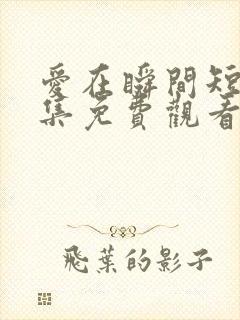 愛在瞬間短
集免費觀看
飛葉的影子